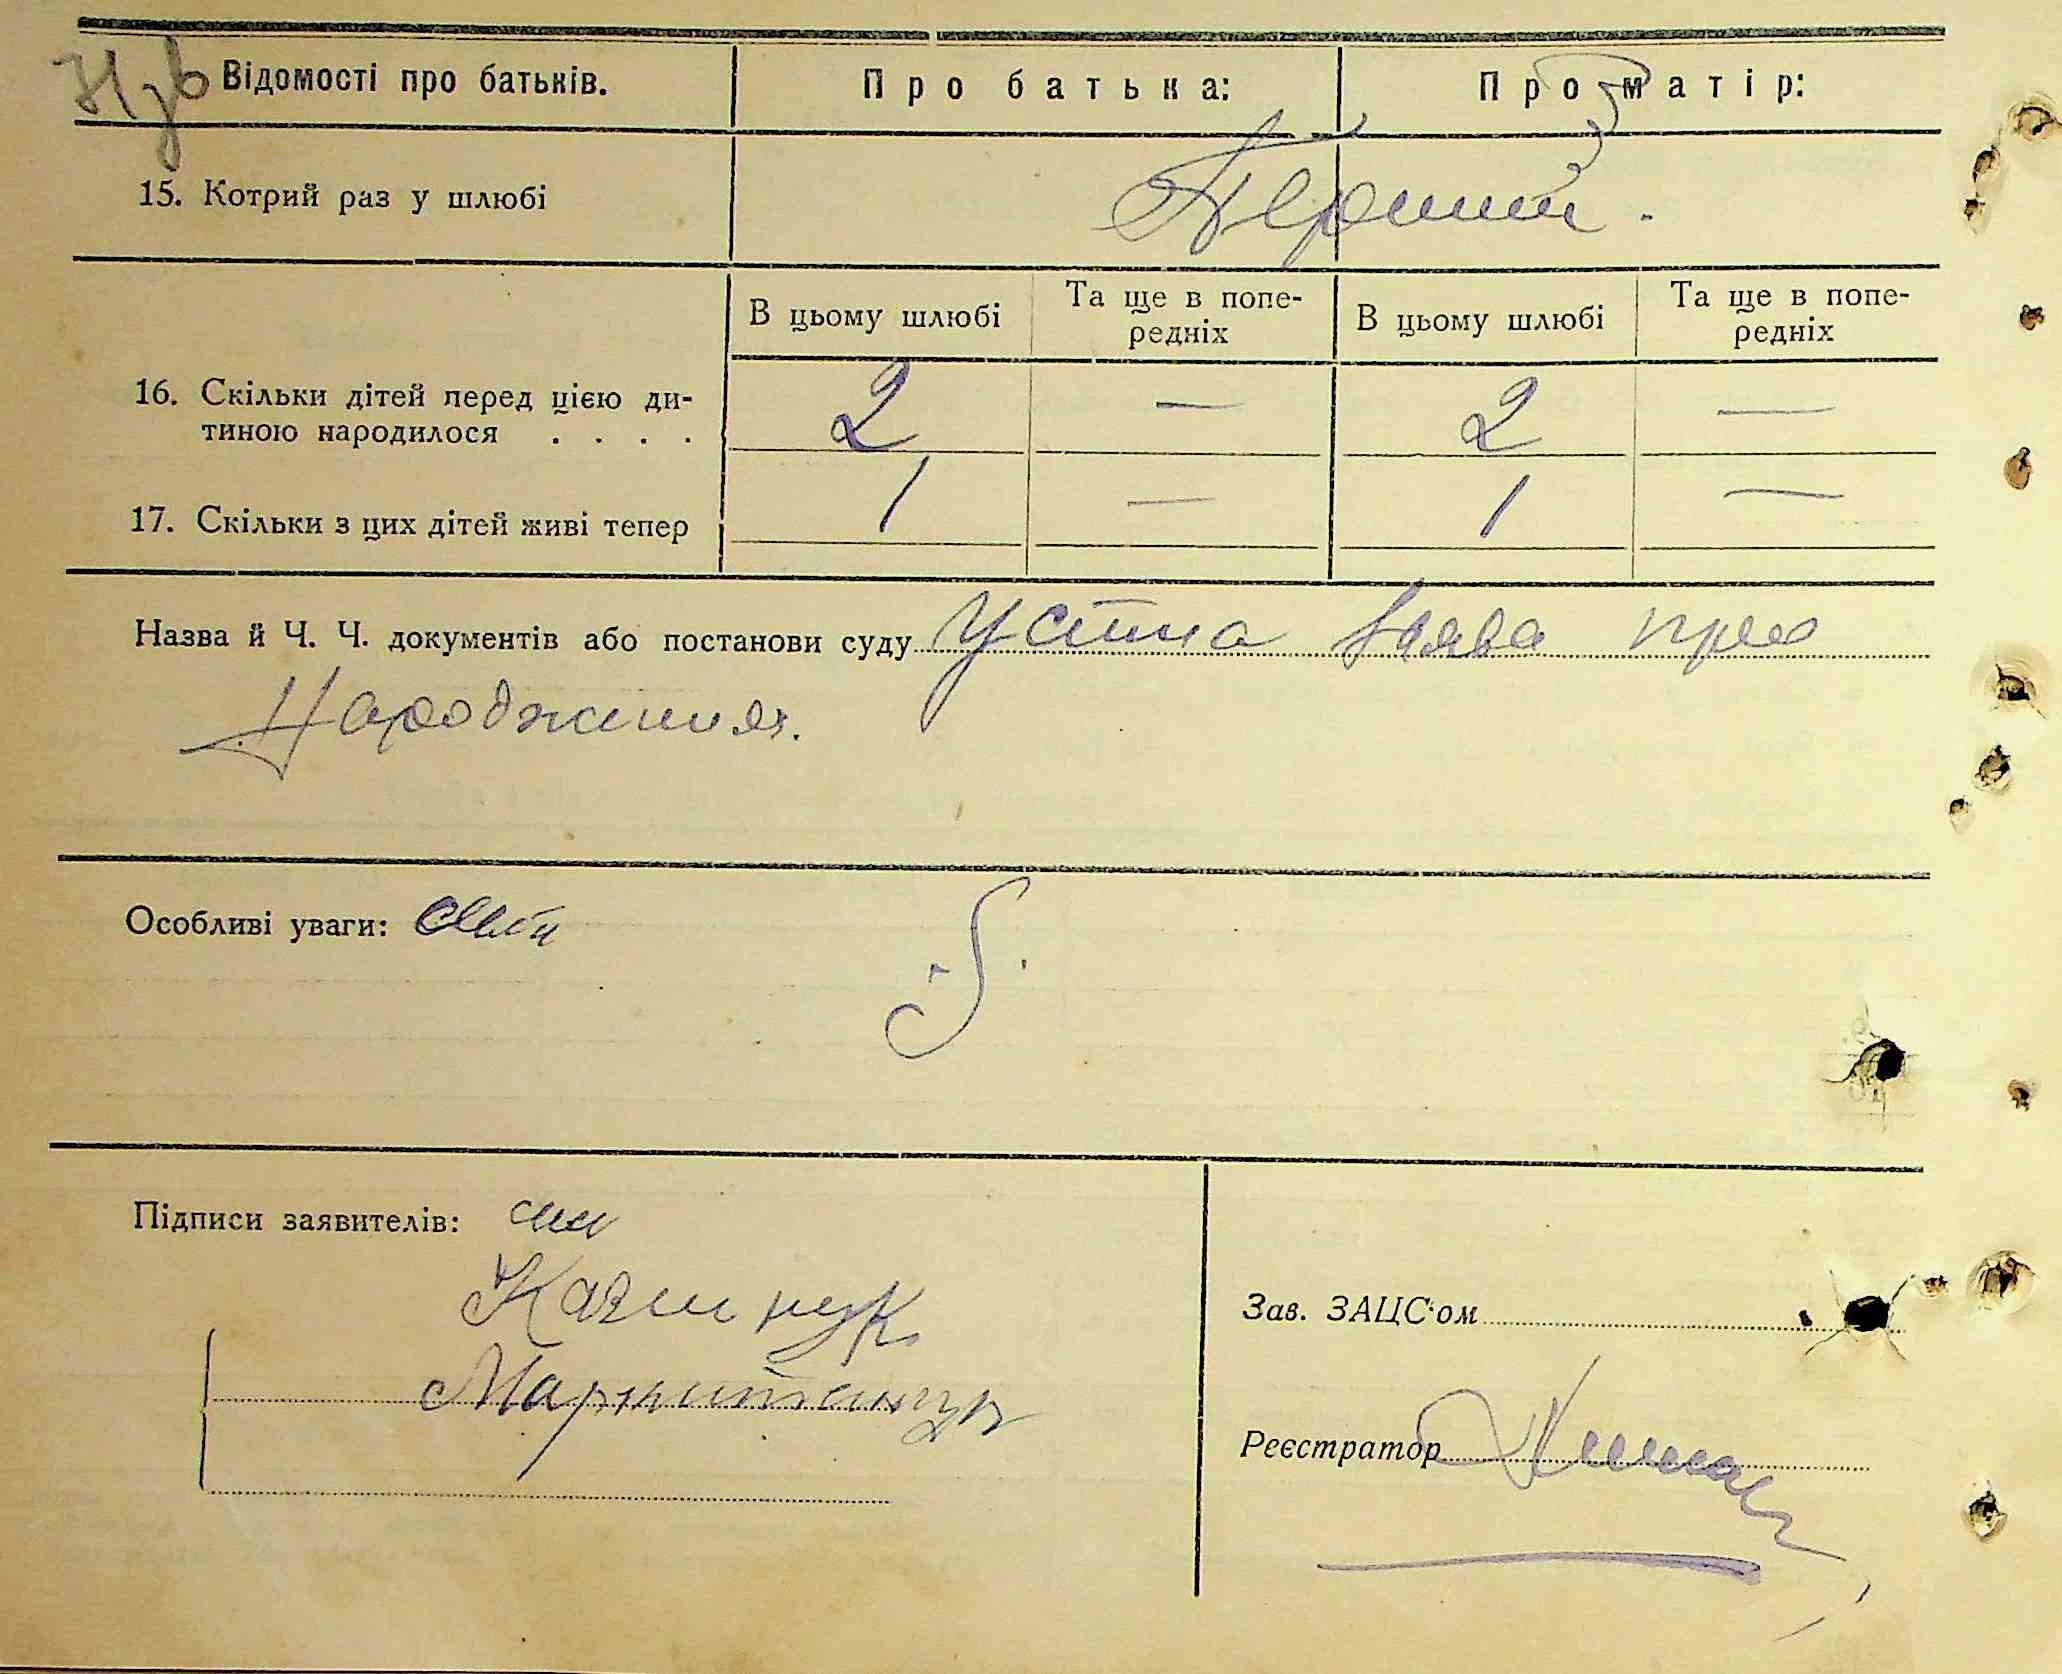 Відомості про батьків.
Про батька:
Про матір:
15. Котрий раз у шлюбі
Перший.
В цьому шлюбі
Та ще в попе-
редніх
В цьому шлюбі
Та ще в попе-
редніх
16. Скільки дітей перед цією ди-
тиною народилося . . . .
2 — 2 —
17. Скільки з цих дітей живі тепер
1 — 1 —
Назва й Ч. Ч. документів або постанови суду Устна заява про
Народження.
Особливі уваги:
Підписи заявителів:
Зав. ЗАЦС'ом
Реєстратор